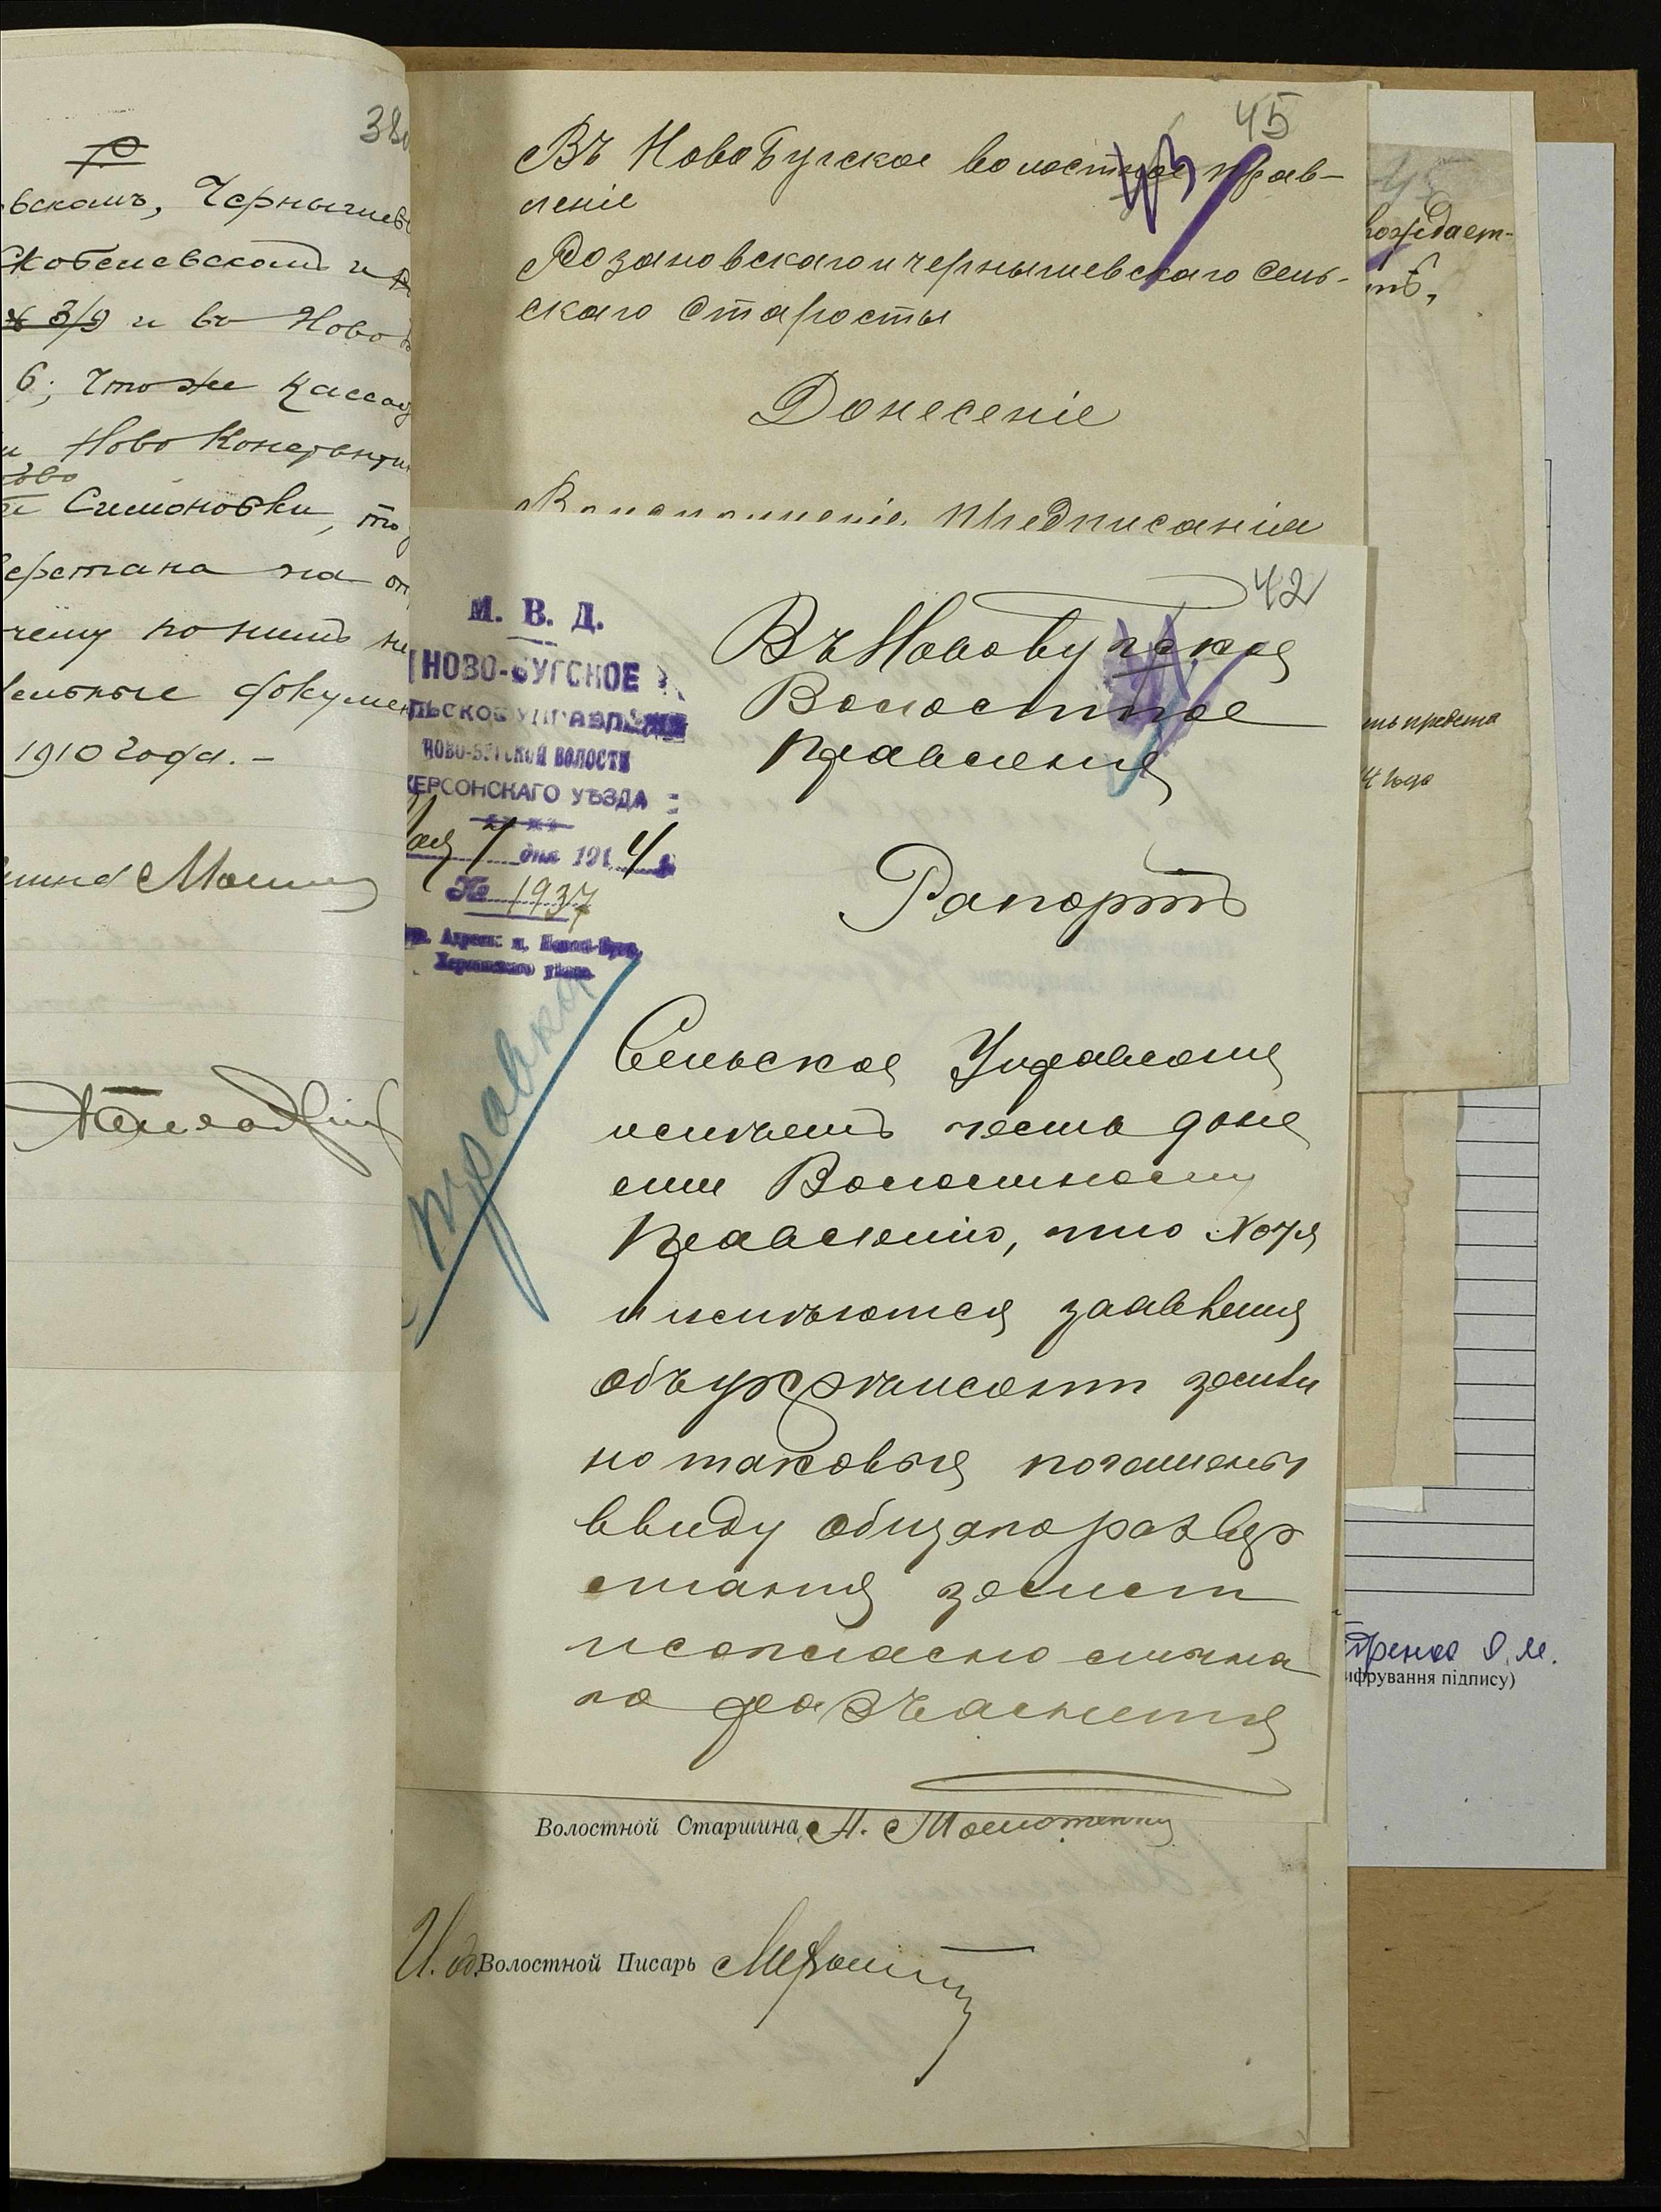 38
вскомъ, Чернышев
Скобелевскомъ и
3/9 и въ Ново
6; Что же касает
и Ново Константи
ново
Симоновки, то
верстана на от
чему по нимъ не
тельные докумен
1910 года. -
45
43
Въ НовоБугское волостное прав-
леніе
Розановскаго и чернышевскаго сель-
скаго Старосты
Донесеніе
Во исполненіе предписанія
42
М. В. Д.
НОВО-БУГСКОЕ
ЛЬСКОЕ УПРАВЛЕНІЕ
НОВО-БУГСКОЙ ВОЛОСТИ
ХЕРСОНСКАГО УѢЗДА
Мая 7 дня 1914
№ 1937
Адресъ: м. Новый-Бугъ,
Херсонскаго уѣзда
Въ Новобугское
Волостное
Правление
Рапортъ
Сельское Управление
имѣетъ честь доне
сти Волостному
Правлению, что хотя
и имѣются заавления
объ укреплении земли
но таковыя погашены
ввиду общаго развер
стания земли
и согласно
разъяснения
справка
Волостной Старшина
И. об. Волостной Писарь
вождает-
ть предста
4 года
ифрування підпису)